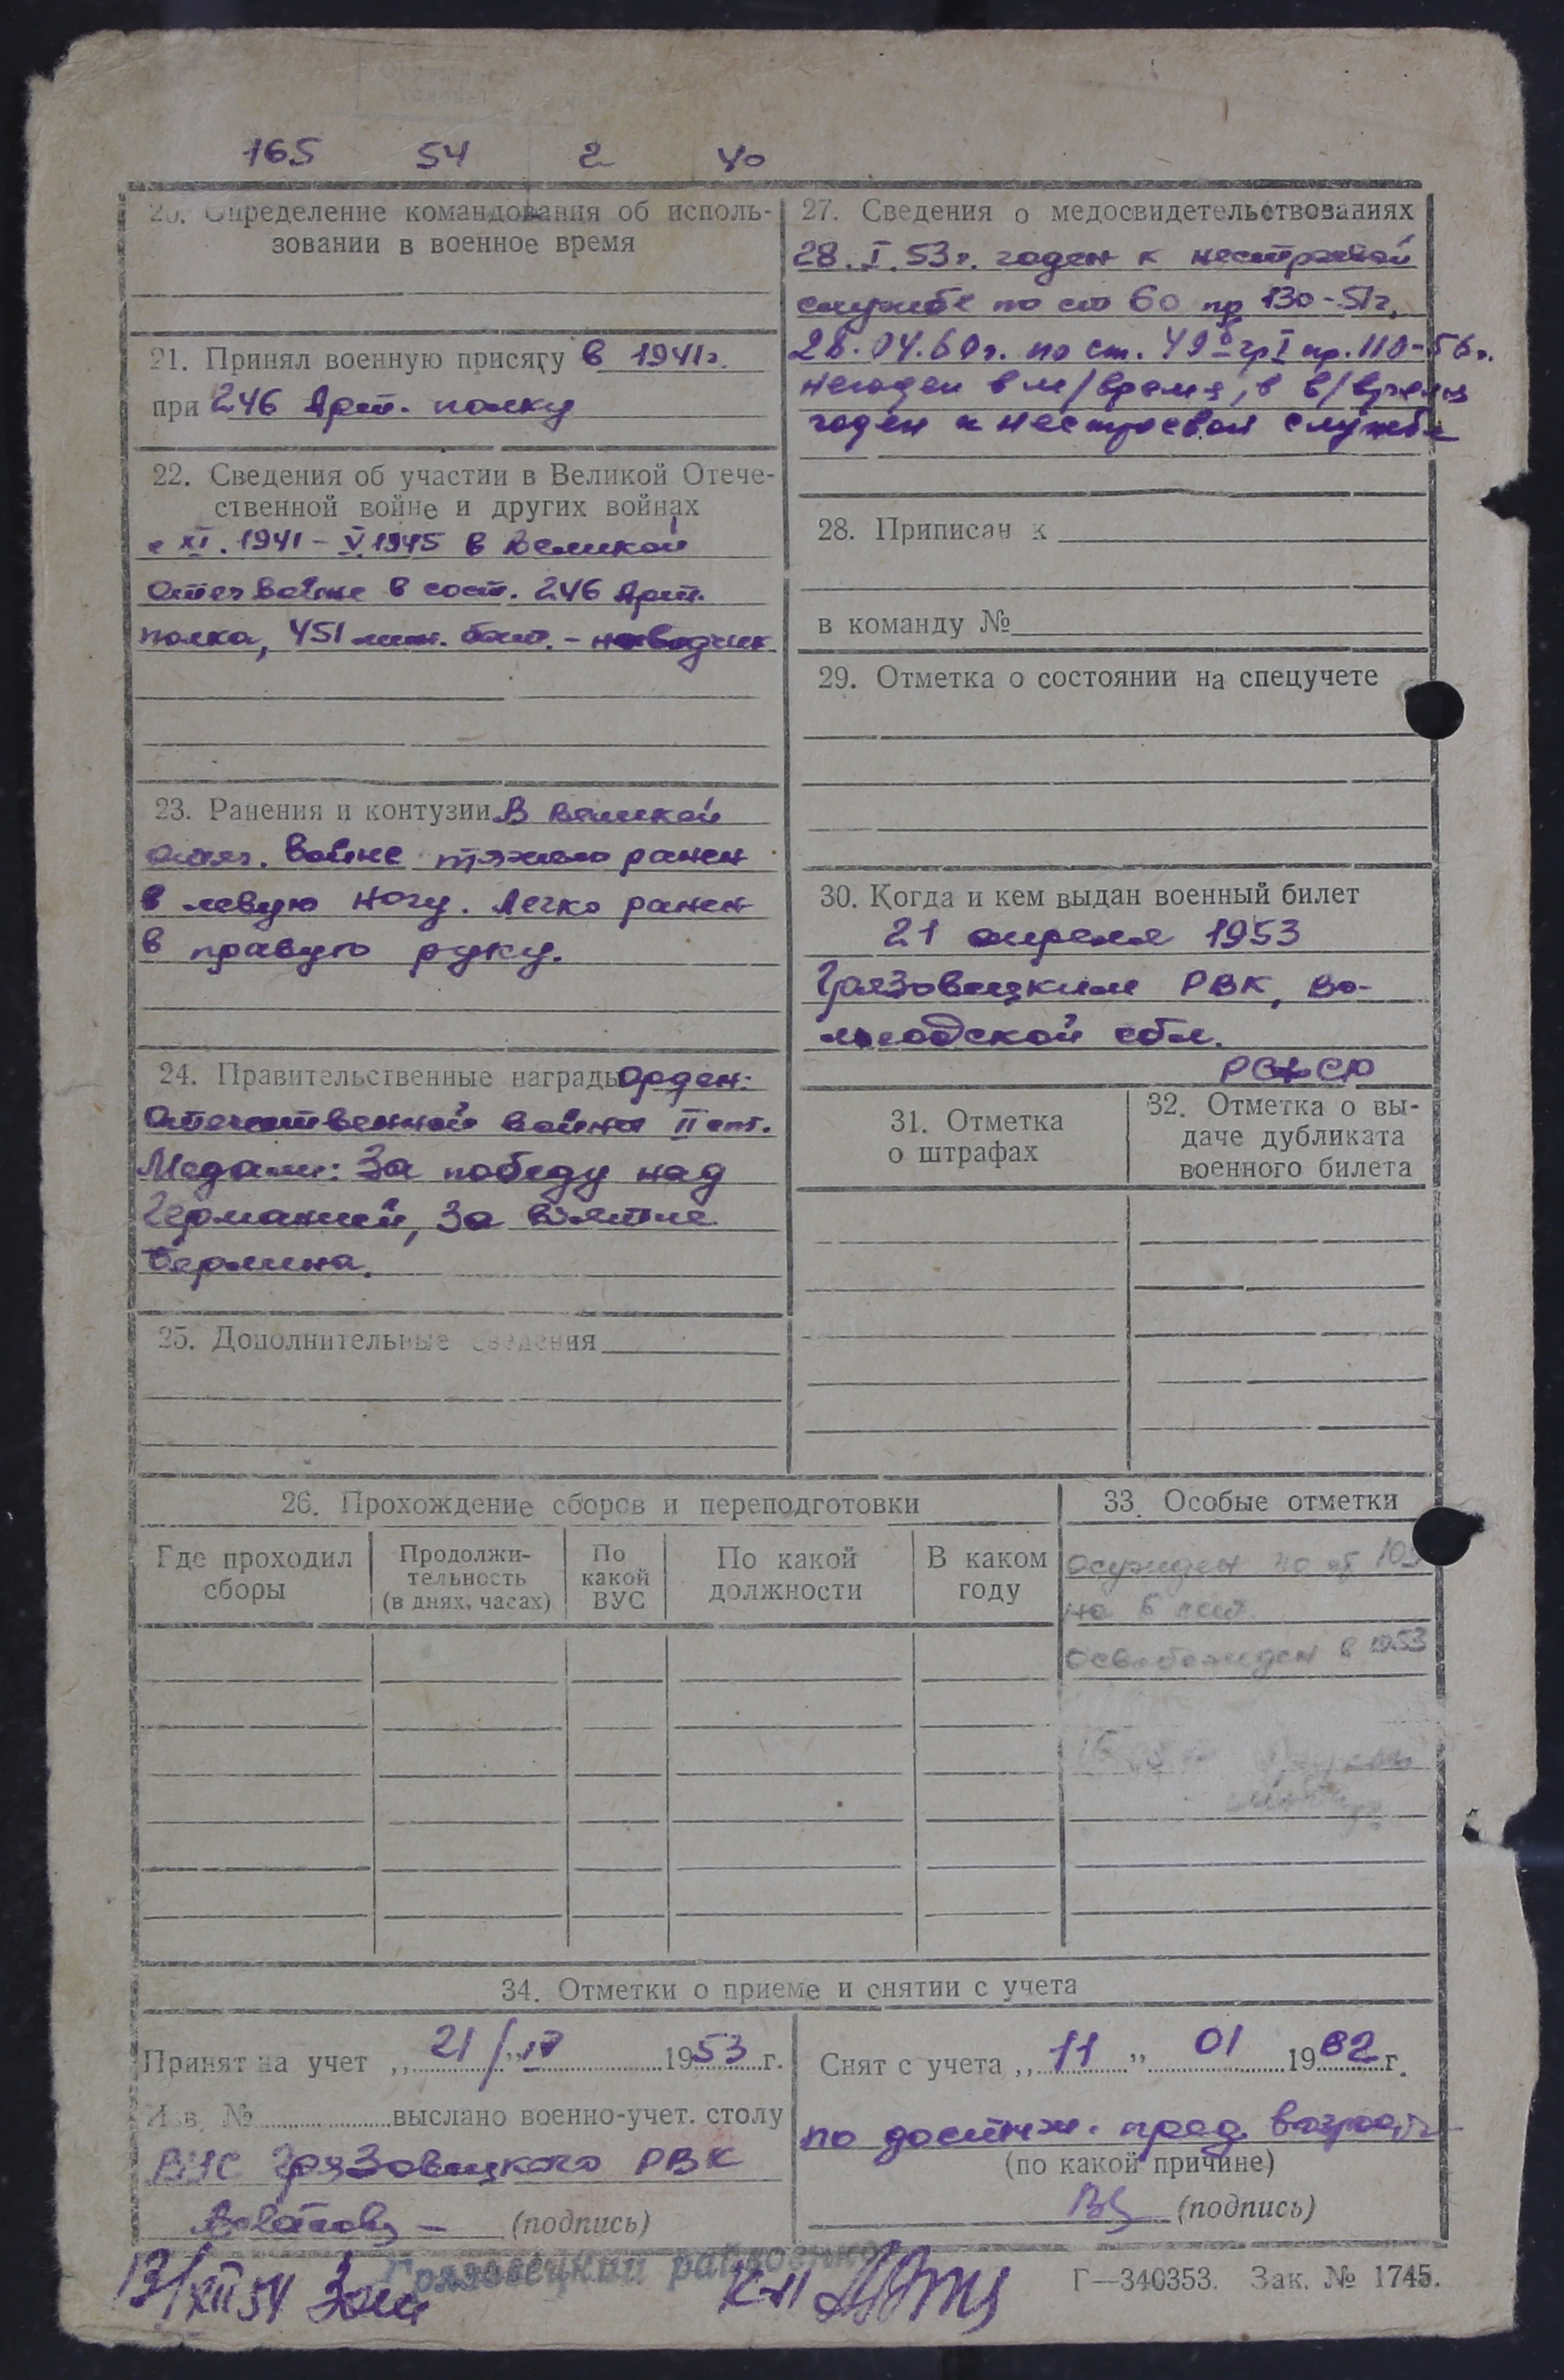 165 54 2 40
20. Определение командования об исполь-
зовании в военное время
21. Принял военную присягу в 1941г.
при 246 Арт. полку
22. Сведения об участии в Великой Отече-
ственной войне и других войнах
с XI. 1941 - V 1945 в Великой
Отеч войне в сост. 246 Арт.
полка, 451 мин. бат. - наводчик
23. Ранения и контузии В Великой
отеч. войне тяжело ранен
в левую ногу. Легко ранен
в правую руку.
24. Правительственные награды Орден:
Отечественной войны II ст.
Медали: За победу над
Германией, За взятие
Берлина.
25. Дополнительные сведения
27. Сведения о медосвидетельствованиях
28. I. 53г. годен к нестроевой
службе по ст 60 пр 130-51г.
28.04.60г. по ст. 49б гр I пр. 110-56г.
негоден в м/время, в в/время
годен к нестроевой службе
28. Приписан к
в команду №
29. Отметка о состоянии на спецучете
30. Когда и кем выдан военный билет
21 апреля 1953
Грязовецким РВК, Во-
логодской обл.
31. Отметка
о штрафах
32. Отметка о вы-
даче дубликата
военного билета
26. Прохождение сборов и переподготовки
Где проходил
сборы
Продолжи-
тельность
(в днях, часах)
По
какой
ВУС
По какой
должности
В каком
году
33. Особые отметки
осужден по
на 6 лет
освобожден в 1953
34. Отметки о приеме и снятии с учета
Принят на учет „21/"IV 1953 г.
Изв. № выслано военно-учет. столу
ВУС Грязовецкого РВК
(подпись)
Снят с учета „11" 01 1962 г.
по достиж. пред. возраста
(по какой причине)
(подпись)
Грязовецкий райвоенко
13/XII 54
Г—340353. Зак. № 1745.